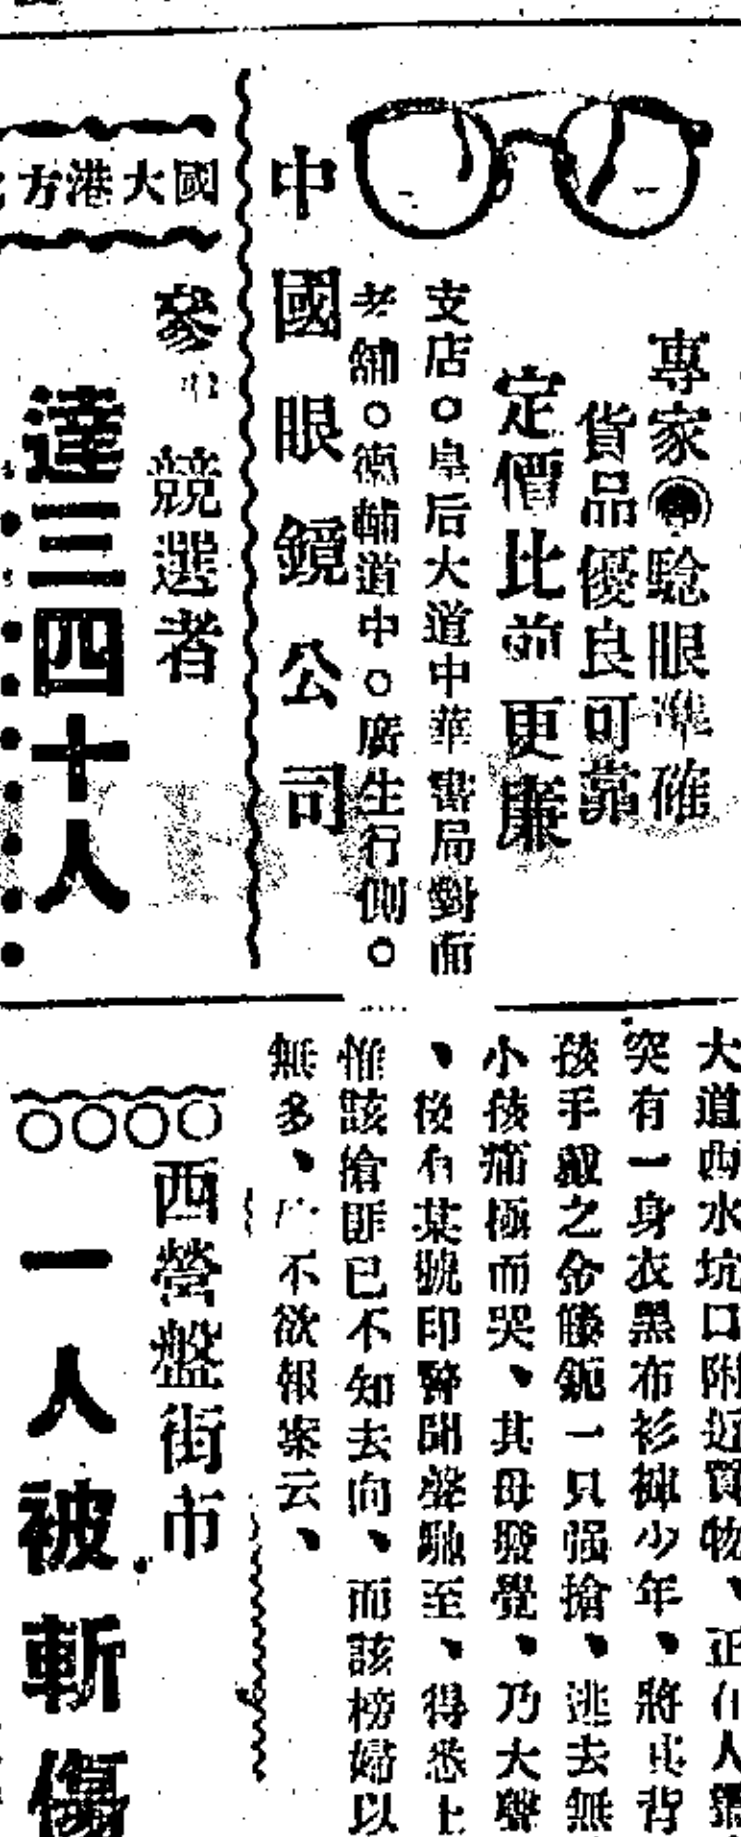 專家驗眼準確
貨品優良可靠
定價比前更廉
支店。皇后大道中華書局對面
老舖。德輔道中。廣生行側。
中國眼鏡公司
國大港方
參 競選者
達三四十人
大道西水坑口附近買物、正在人
突有一身衣黑布衫褲少年、將其背
孩手戴之金鈪一只强搶、逃去無
小孩痛極而哭、其母發覺、乃大聲
、後有某號印警聞聲馳至、得悉上
惟該搶匪已不知去向、而該婦以
無多、不欲報案云、
西營盤街市
一人被斬傷